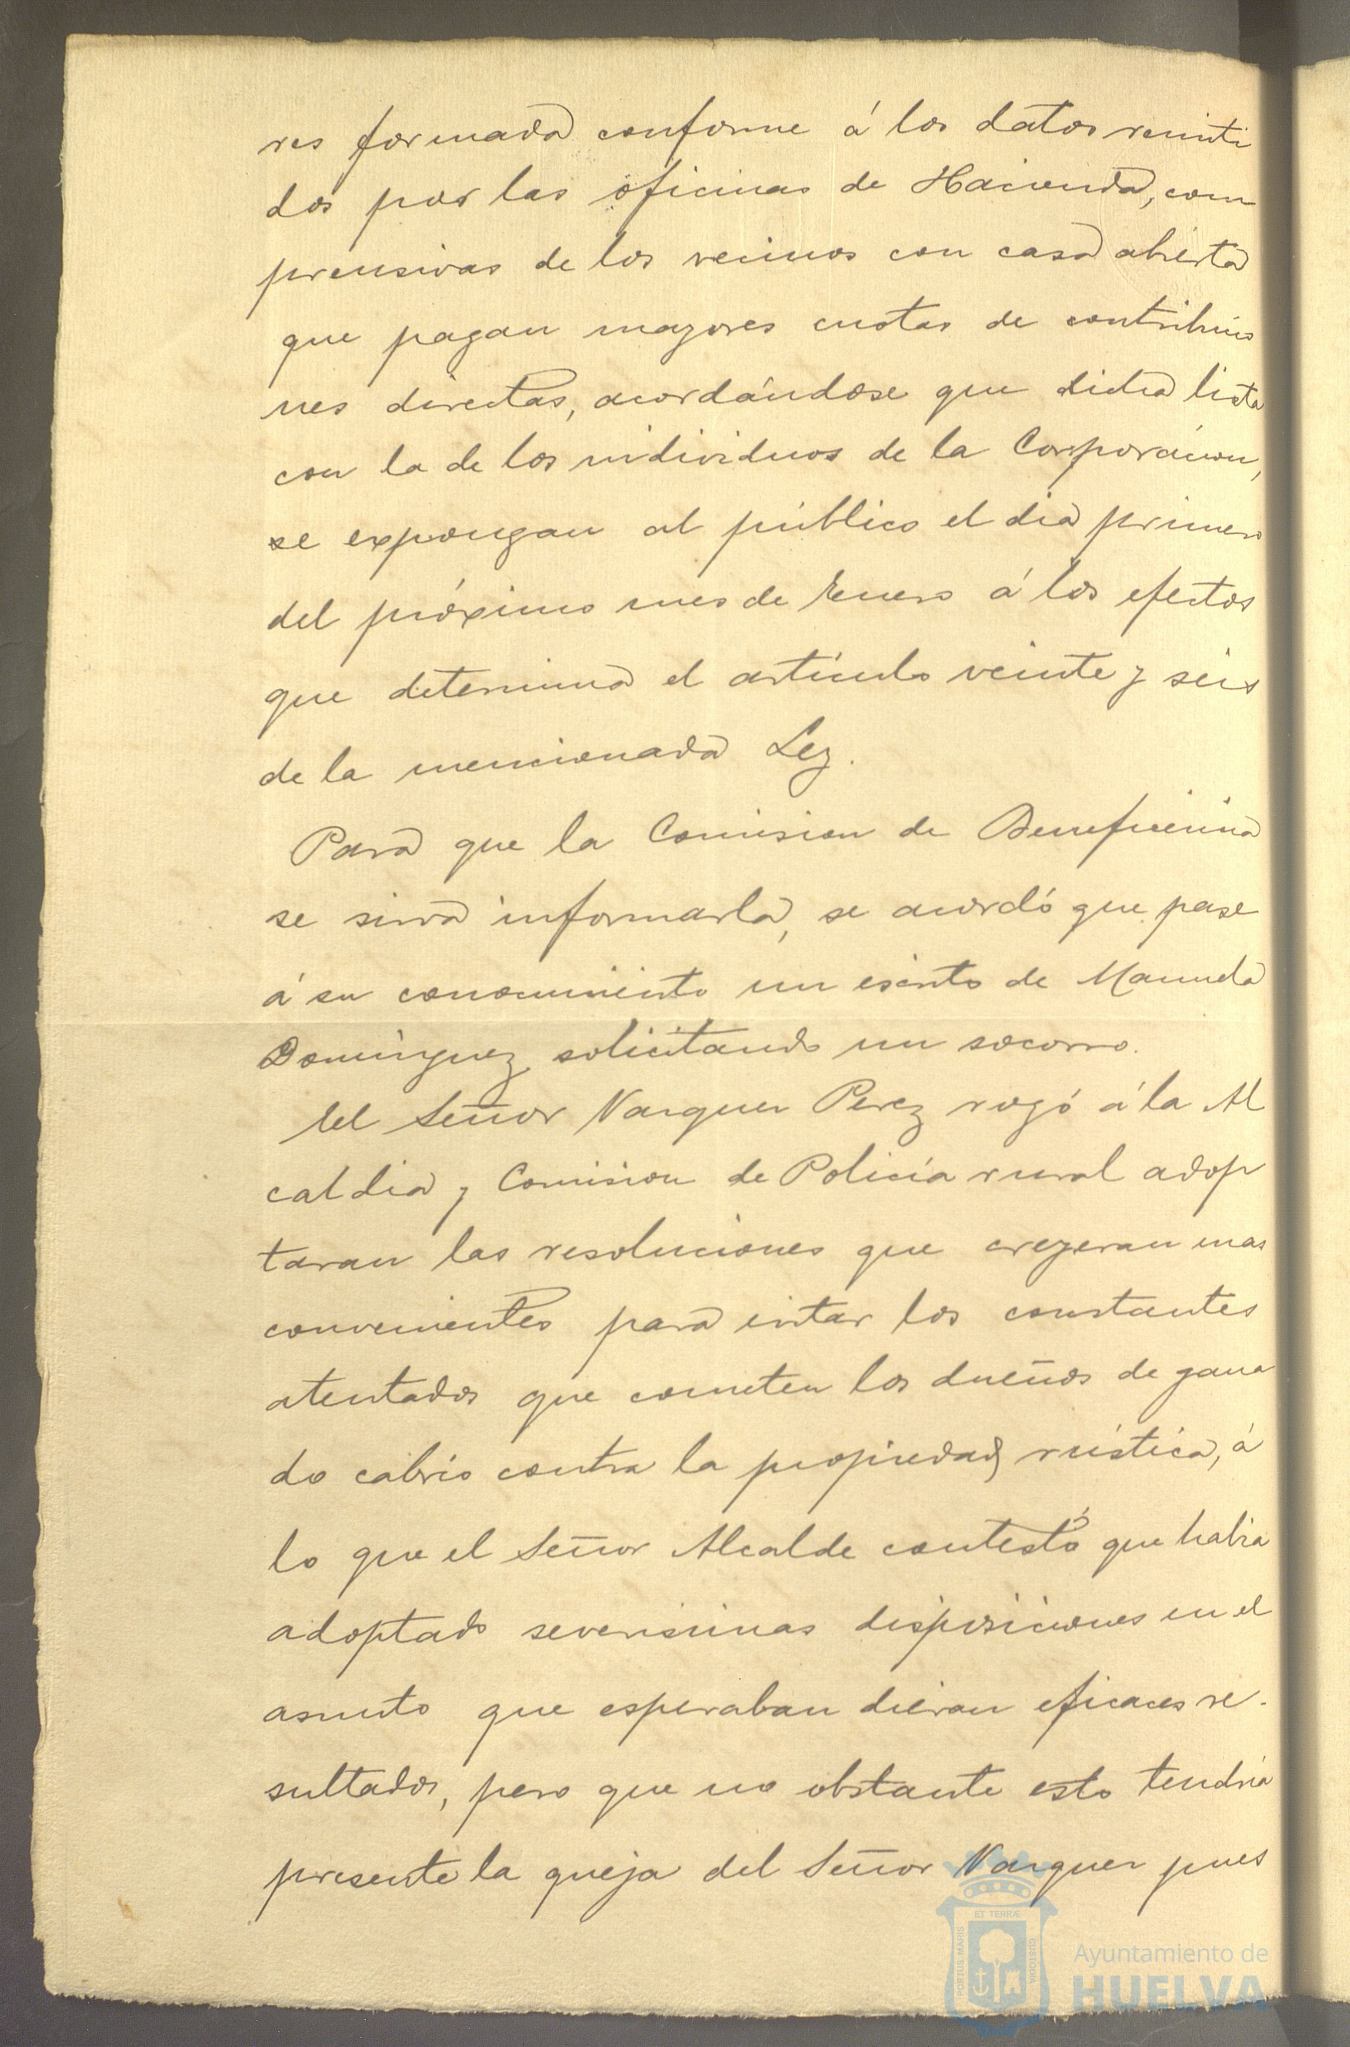 res formada conforme á los datos remiti
dos por las oficinas de Hacienda, com
prensivas de los vecinos con casa abierta
que pagan mayores cuotas de contribucio
nes directas, acordándose que dicha lista
con la de los individuos de la Corporacion,
se expongan al público el dia primero
del próximo mes de Enero á los efectos
que determina el artículo veinte y seis
de la mencionada Ley.
Para que la Comision de Beneficencia
se sirva informarla, se acordó que pase
á su conocimiento un escrito de Manuela
Domínguez solicitando un socorro.
El Señor Vazquez Perez rogó á la Al
caldia y Comision de Policía rural adop
taran las resoluciones que creyeran mas
convenientes para evitar los constantes
atentados que cometen los dueños de gana
do cabrio contra la propiedad rústica, á
lo que el Señor Alcalde contestó que habia
adoptado severisimas disposiciones en el
asunto que esperaban dieran eficaces re-
sultados, pero que no obstante esto tendria
presente la queja del Señor Vazquez pues
PORTUS MARIS
ET TERRÆ
CUSTODIA
Ayuntamiento de
HUELVA